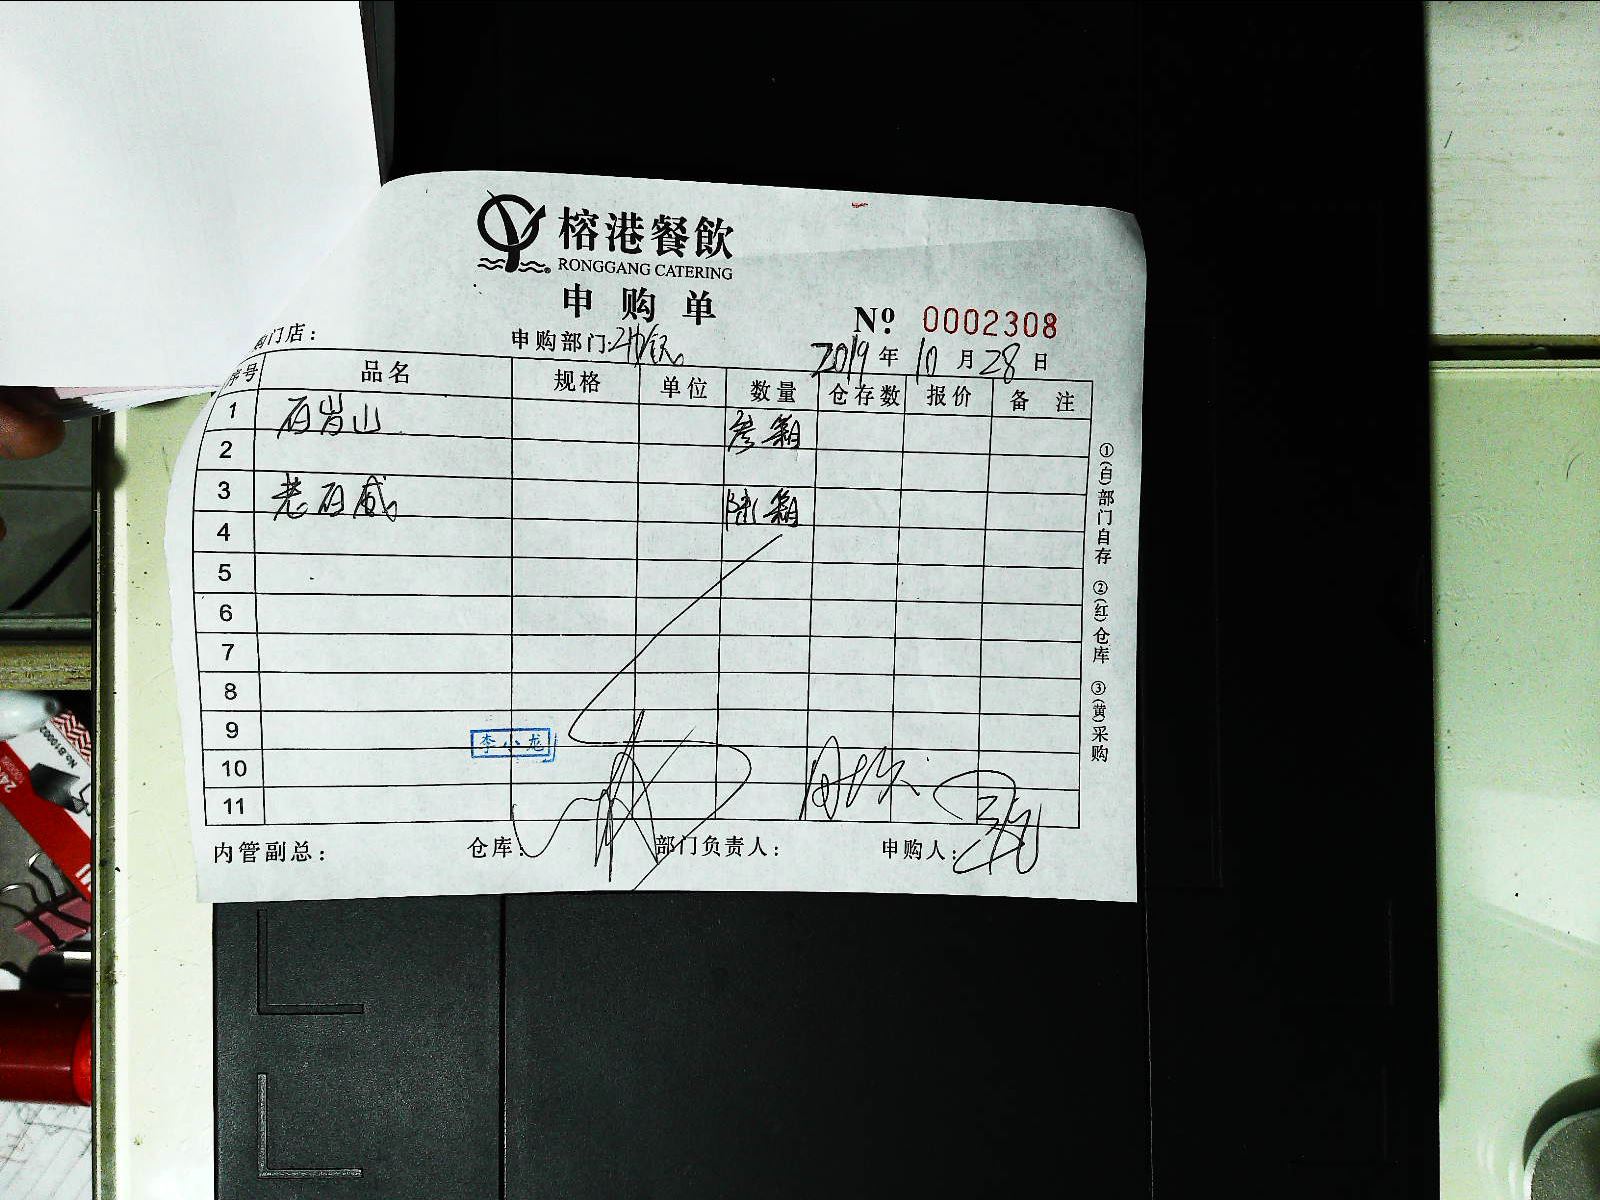 榕港餐飲
RONGGANG CATERING
申购单
Nº 0002308
购门店： 申购部门: 2019年10月28日
序号 品名 规格 单位 数量 仓存数 报价 备注
1 石岩山 叁箱
2
3 老石威 陆箱
4
5
6
7
8
9 李小龙
10
11
内管副总： 仓库： 部门负责人： 申购人：
①(白)部门自存 ②(红)仓库 ③(黄)采购
No.B10002